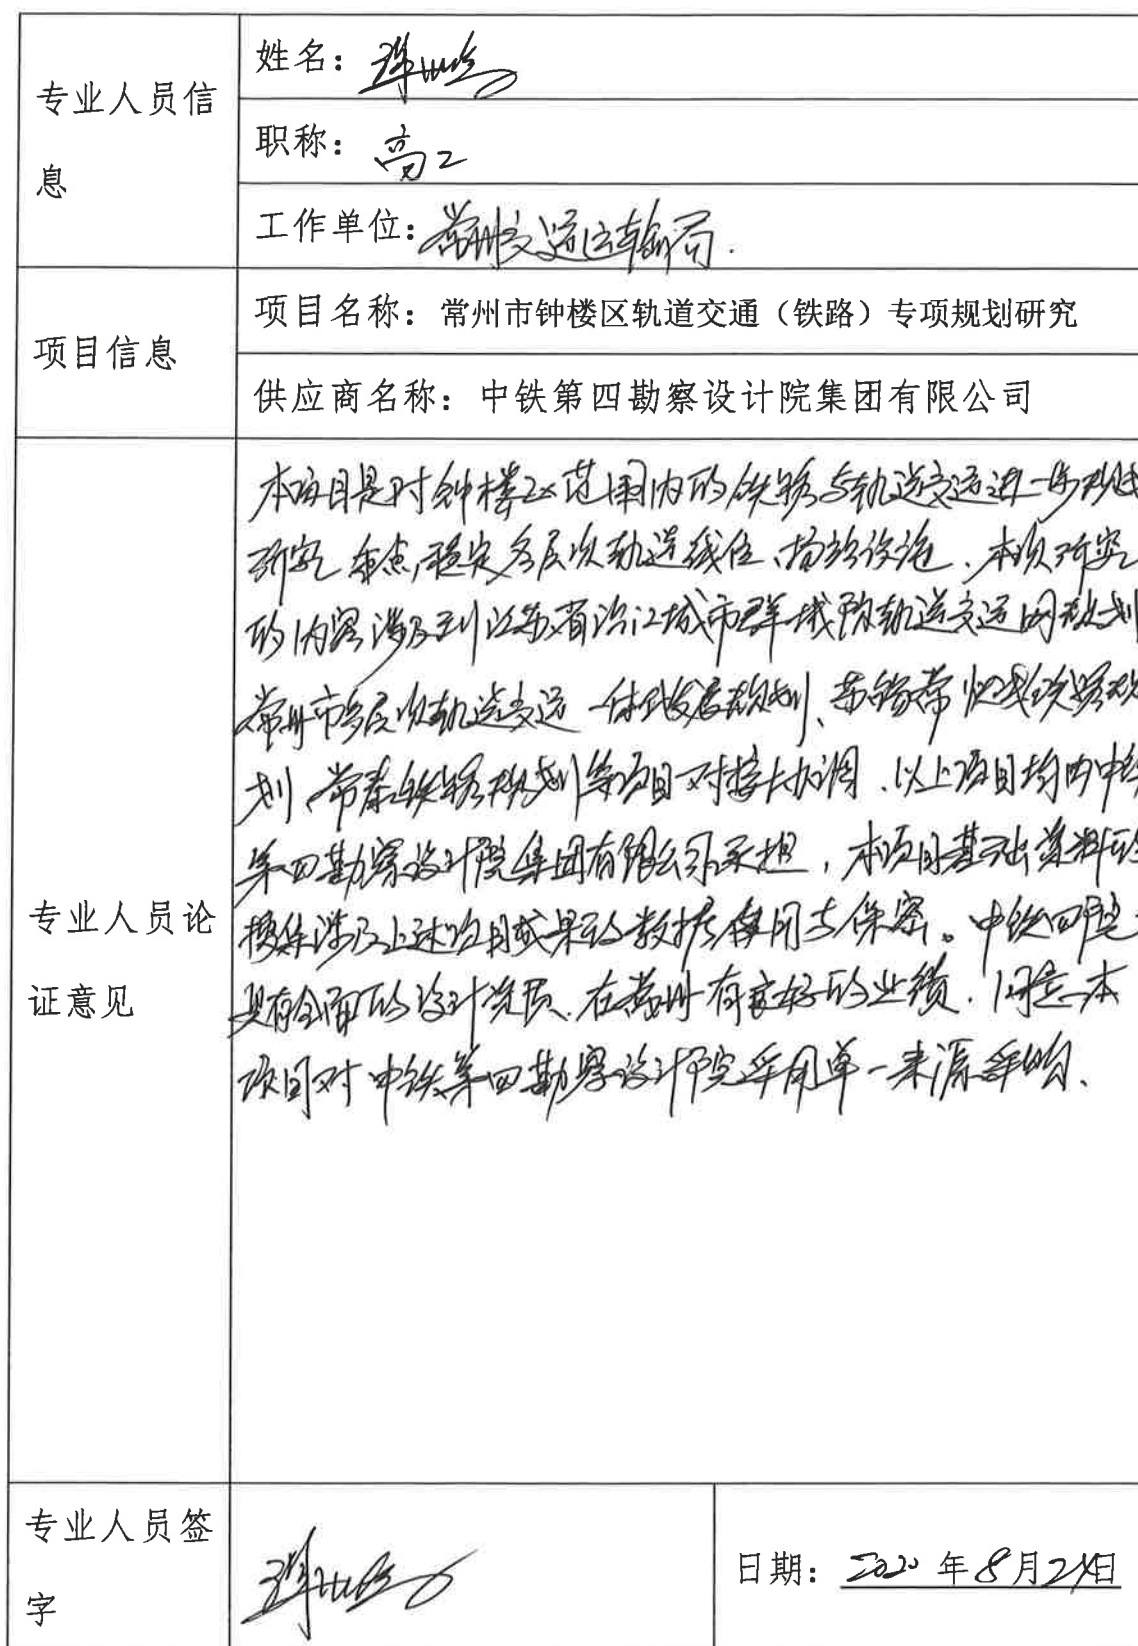 专业人员信
息
姓名：
职称：高工
工作单位：常州交通运输局.
项目信息
项目名称：常州市钟楼区轨道交通（铁路）专项规划研究
供应商名称：中铁第四勘察设计院集团有限公司
专业人员论
证意见
本项目是对钟楼区范围内的铁路与轨道交通进一步规划
研究，重点稳定多层次轨道线位、场站设施。本次研究
的内容涉及到江苏省沿江城市群城际轨道交通网规划
常州市多层次轨道交通一体化发展规划、苏锡常快线铁路规
划、常泰铁路规划等项目对接与协调。以上项目均由中铁
第四勘察设计院集团有限公司承担，本项目基础资料的
搜集涉及上述项目成果的数据使用与保密。中铁四院
具有全面的设计资质、在常州有良好的业绩。同意本
项目对中铁第四勘察设计院采用单一来源采购、
专业人员签
字
日期：2020年8月2日